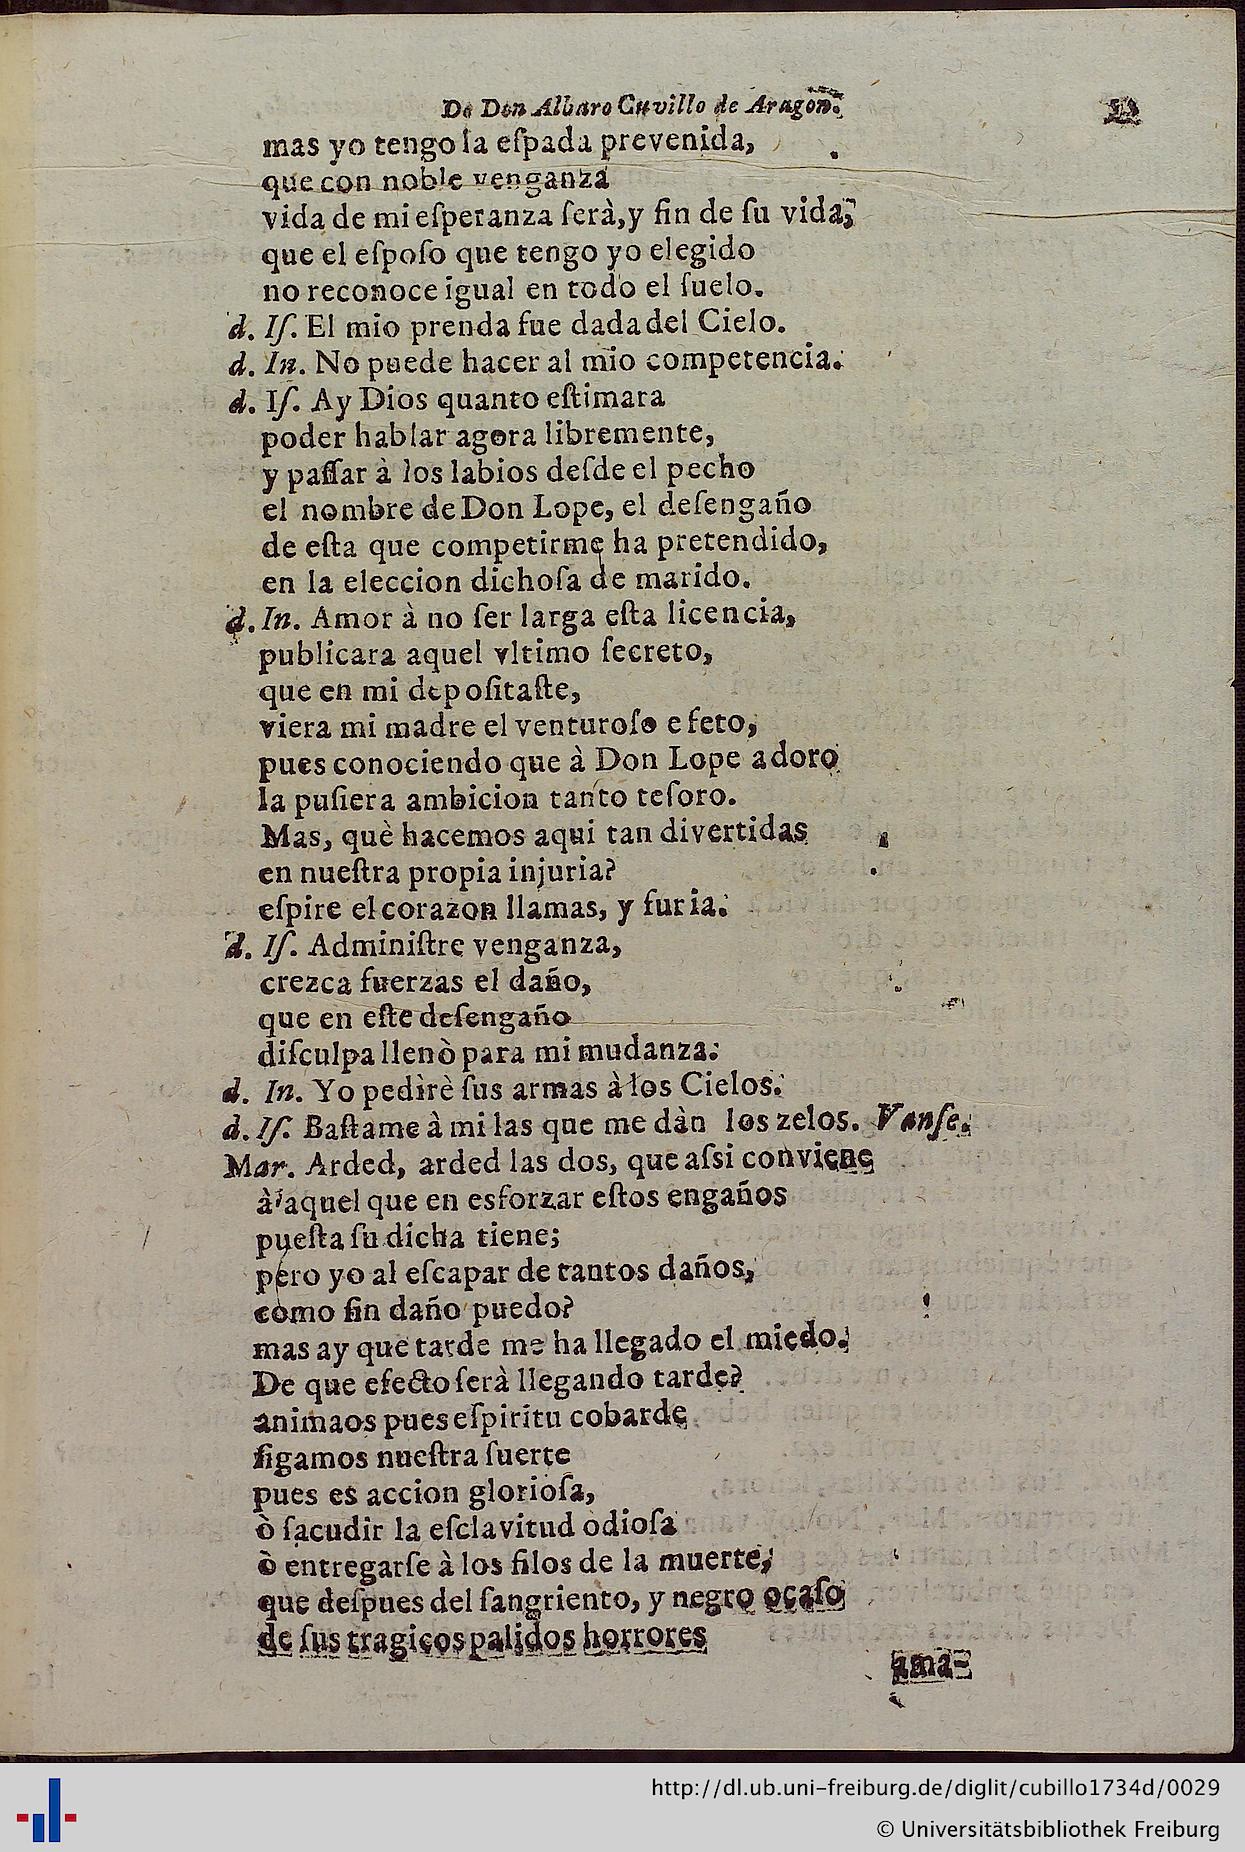 De Don Albaro Cuvillo de Aragon.
mas yo tengo la eſpada prevenida,
que con noble venganza
vida de mi eſperanza ſerà, y fin de ſu vida;
que el eſpoſo que tengo yo elegido
no reconoce igual en todo el ſuelo.
d. Iſ. El mio prenda fue dada del Cielo.
d. In. No puede hacer al mio competencia.
d. Iſ. Ay Dios quanto eſtimara
poder hablar agora libremente,
y paſſar à los labios deſde el pecho
el nombre de Don Lope, el deſengaño
de eſta que competirme ha pretendido,
en la eleccion dichoſa de marido.
d. In. Amor à no ſer larga eſta licencia,
publicara aquel vltimo ſecreto,
que en mi depoſitaſte,
viera mi madre el venturoſo efeto,
pues conociendo que à Don Lope adoro
la puſiera ambicion tanto teſoro.
Mas, què hacemos aqui tan divertidas
en nueſtra propia injuria?
eſpire el corazon llamas, y furia.
d. Iſ. Adminiſtre venganza,
crezca fuerzas el daño,
que en eſte deſengaño
diſculpa llenò para mi mudanza.
d. In. Yo pedirè ſus armas à los Cielos.
d. Iſ. Baſtame à mi las que me dàn los zelos. Vanſe.
Mar. Arded, arded las dos, que aſsi conviene
à aquel que en esforzar eſtos engaños
pueſta ſu dicha tiene;
pero yo al eſcapar de tantos daños,
como ſin daño puedo?
mas ay que tarde me ha llegado el miedo.
De que efecto ſerà llegando tarde?
animaos pues eſpiritu cobarde
ſigamos nueſtra ſuerte
pues es accion glorioſa,
ò ſacudir la eſclavitud odioſa
ò entregarſe à los filos de la muerte;
que deſpues del ſangriento, y negro ocaſo
de ſus tragicos palidos horrores
ama-
http://dl.ub.uni-freiburg.de/diglit/cubillo1734d/0029
© Universitätsbibliothek Freiburg